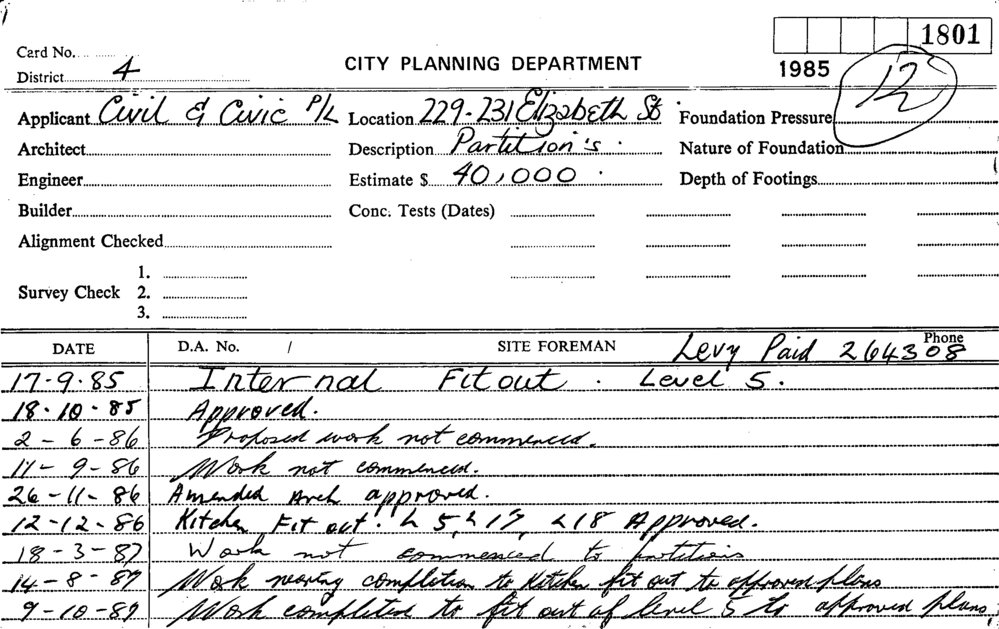 1801
Card No.
District 4
CITY PLANNING DEPARTMENT
1985
12
Applicant Civil & Civic P/L Location 229-231 Elizabeth St. Foundation Pressure
Architect Description Partition's. Nature of Foundation
Engineer Estimate $ 40,000. Depth of Footings
Builder Conc. Tests (Dates)
Alignment Checked
1.
Survey Check 2.
3.
DATE D.A. No. / SITE FOREMAN Levy Paid 264308 Phone
17-9.85 Internal Fit out. Level 5.
18.10.85 Approved.
2-6-86 Proposed work not commenced.
11-9-86 Work not commenced.
26-11-86 Amended Arch approved.
12-12-86 Kitchen Fit out. L 5, L 17, L 18 Approved.
18-3-87 Work not commenced to partitions
14-8-87 Work nearing completion to kitchen fit out to approved plans
9-10-87 Work completed to fit out of level 5 to approved plans.